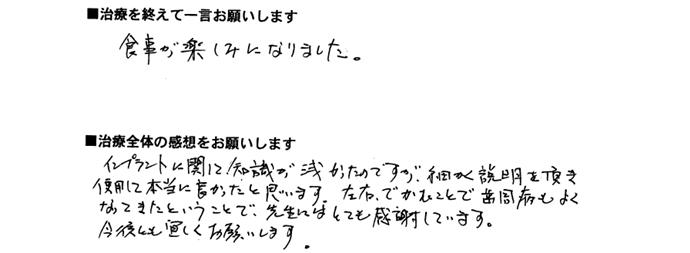 ■治療を終えて一言お願いします
食事が楽しみになりました。
■治療全体の感想をお願いします
インプラントに関して知識が浅かったのですが、細かく説明を頂き
使用して本当に良かったと思います。左右でかむことで歯周病もよく
なってきたということで、先生にはとても感謝しています。
今後とも宜しくお願いします。